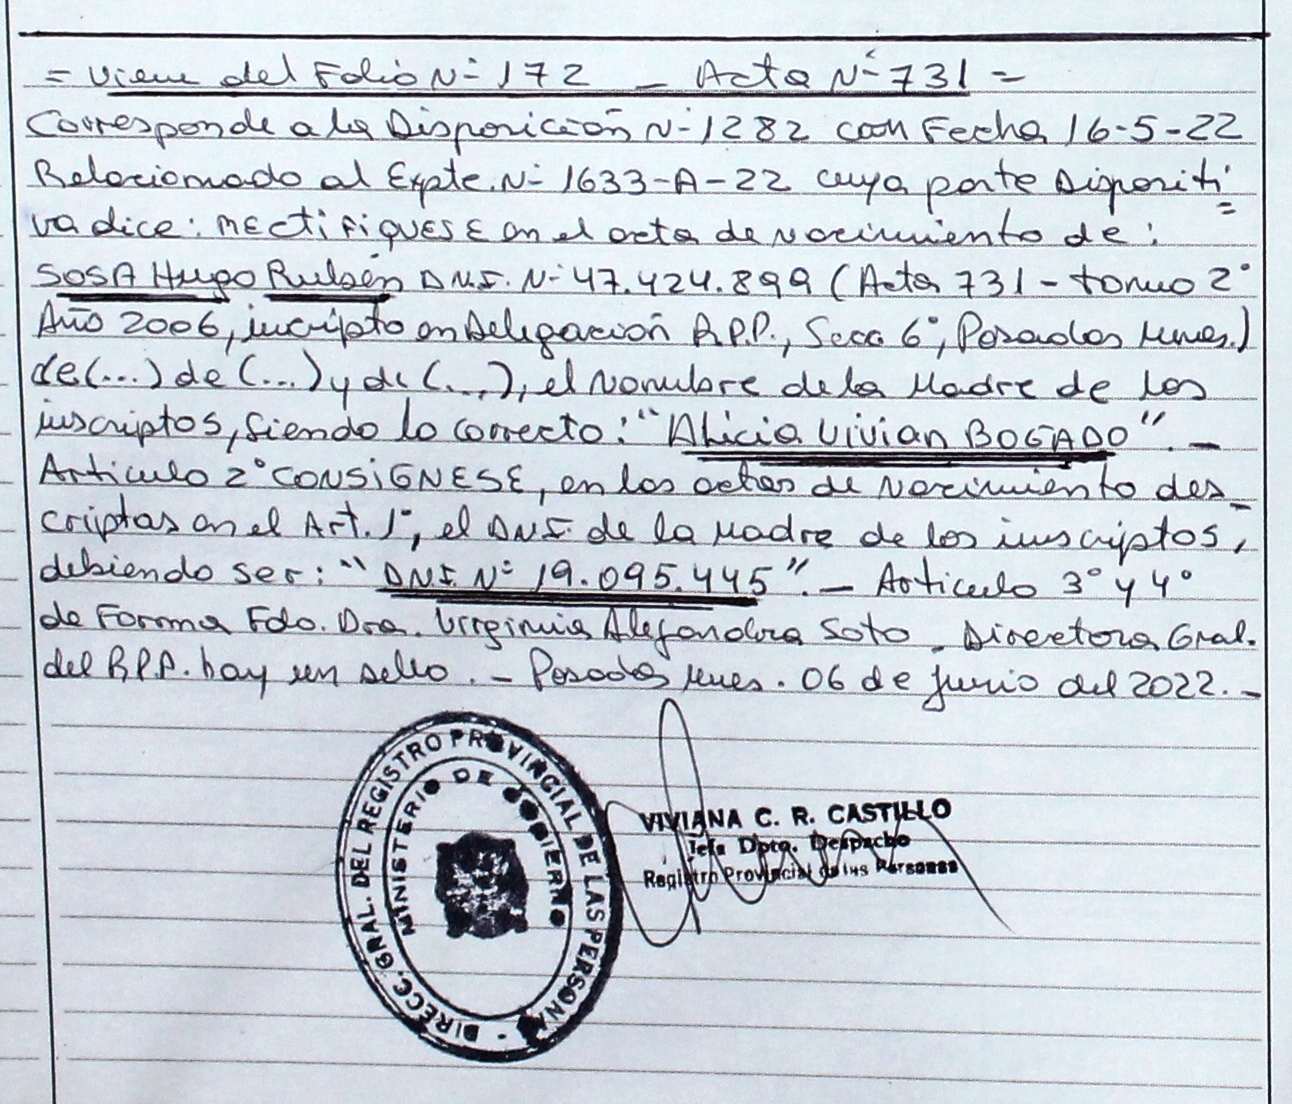 = Viene del Folio Nº 172 _ Acta Nº 731 =
Corresponde a la Disposición Nº 1282 con Fecha 16-5-22
Relacionado al Expte. Nº 1633-A-22 cuya parte Dispositi=
va dice: RECTIFIQUESE en el acta de nacimiento de:
SOSA Hugo Rubén D.N.I. Nº 47.424.899 (Acta 731 - tomo 2º
Año 2006, inscripto en Delegación R.P.P., Secc 6º, Posadas Mnes.)
de (...) de (...) y de (...), el Nombre de la Madre de los
inscriptos, siendo lo correcto: "Alicia Vivian BOGADO". _
Articulo 2º CONSIGNESE, en las actas de nacimiento des_
criptas en el Art. 1º, el D.N.I. de la Madre de los inscriptos,
debiendo ser: "D.N.I. Nº 19.095.445". _ Articulo 3º y 4º
de Forma Fdo. Dra. Virginia Alejandra Soto _ Directora Gral.
del R.P.P. hay un sello. _ Posadas Mnes. 06 de Junio del 2022. _
DIRECC. GRAL. DEL REGISTRO PROVINCIAL DE LAS PERSONAS -
MINISTERIO DE GOBIERNO
VIVIANA C. R. CASTILLO
Jefa Dpto. Despacho
Registro Provincial de las Personas